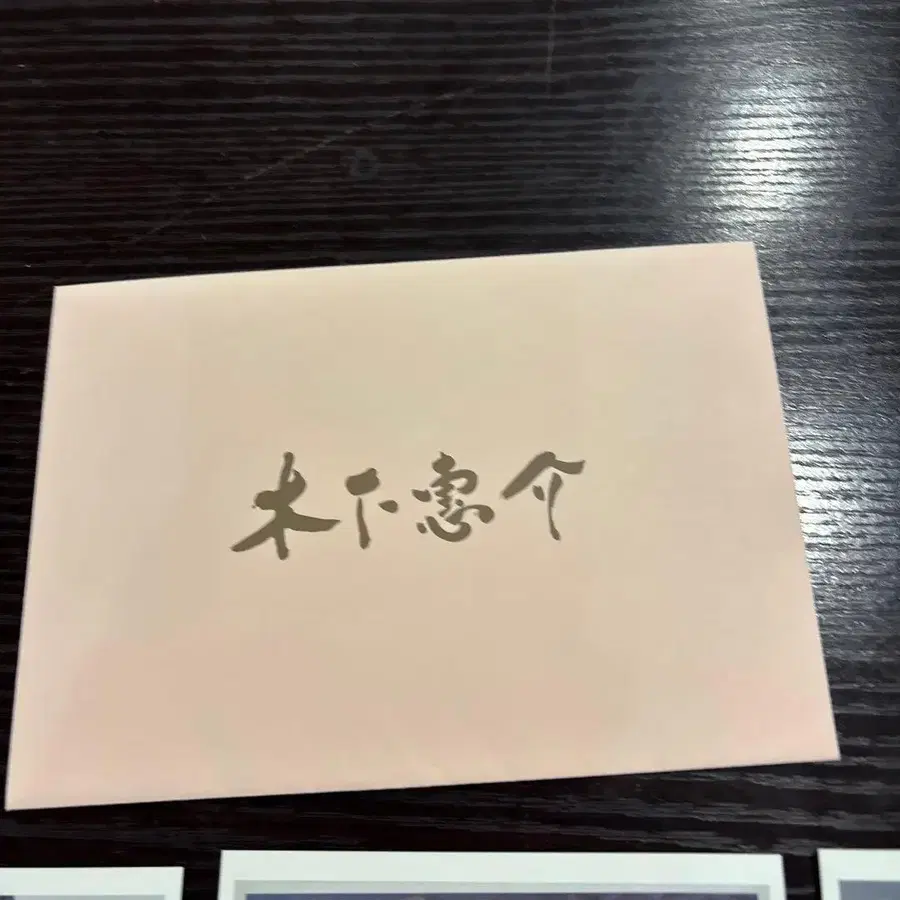 木下惠介